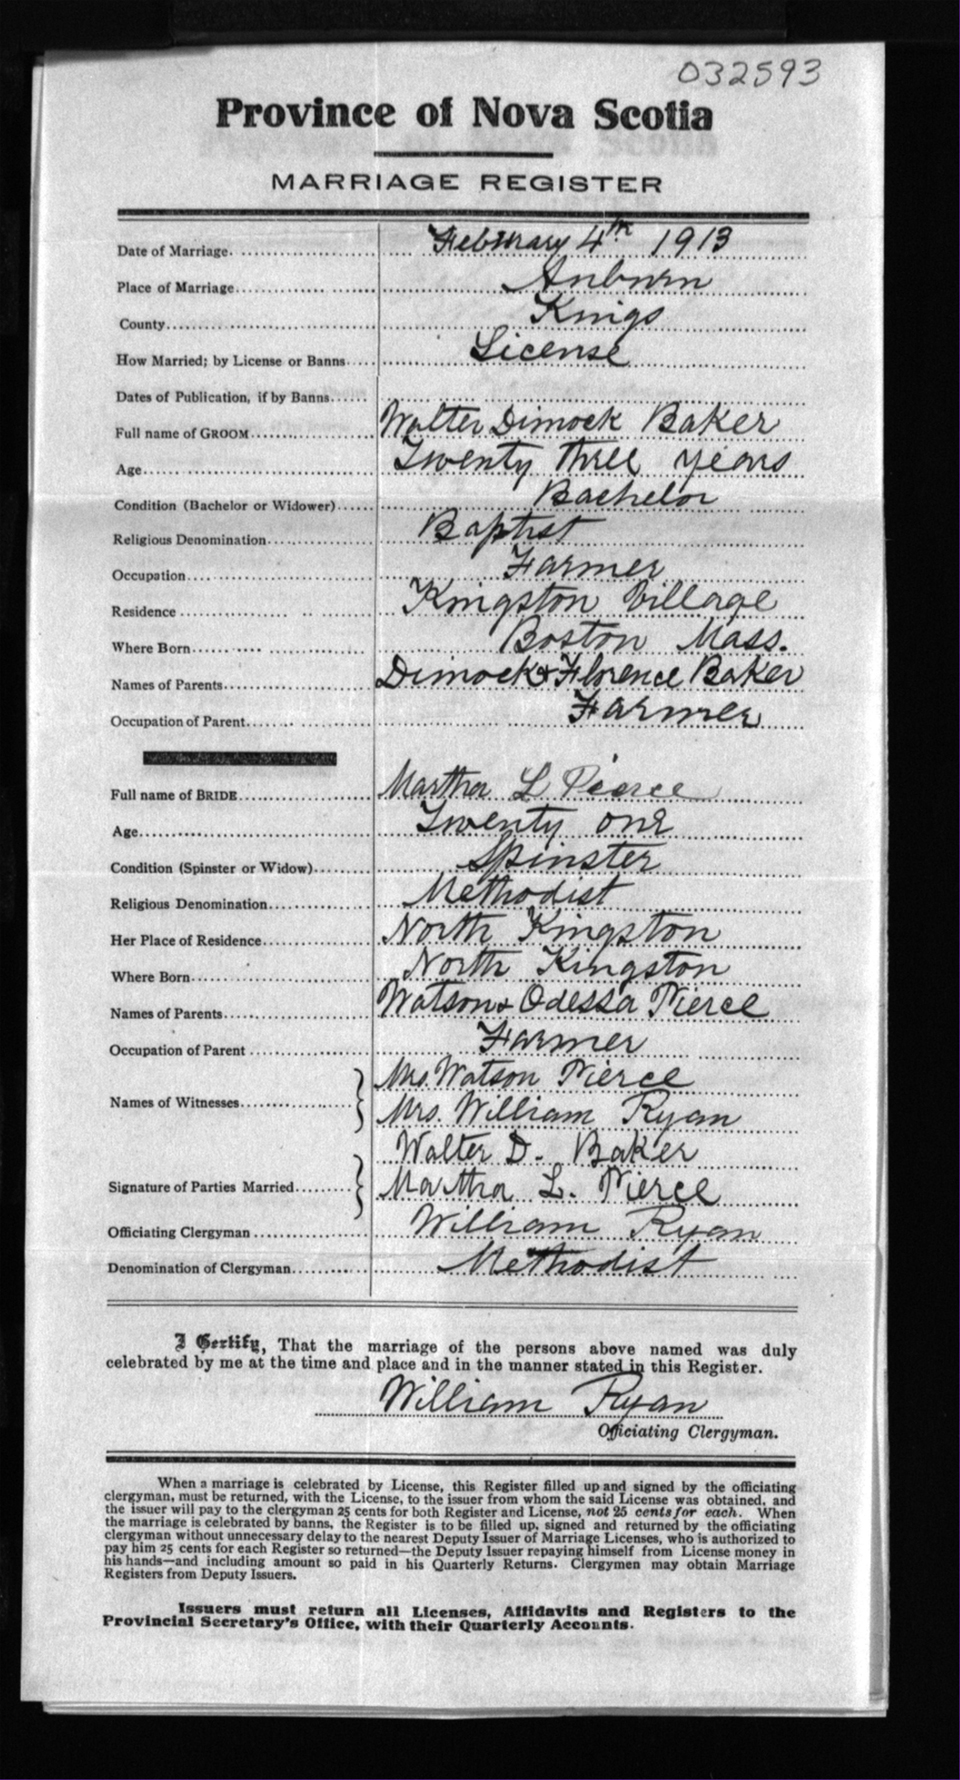 032593
Province of Nova Scotia
MARRIAGE REGISTER
Date of Marriage February 4th 1913
Place of Marriage Auburn
County Kings
How Married; by License or Banns License
Dates of Publication, if by Banns
Full name of GROOM Walter Dimock Baker
Age Twenty three years
Condition (Bachelor or Widower) Bachelor
Religious Denomination Baptist
Occupation Farmer
Residence Kingston Village
Where Born Boston Mass.
Names of Parents Dimock & Florence Baker
Occupation of Parent Farmer
Full name of BRIDE Martha L Pierce
Age Twenty one
Condition (Spinster or Widow) Spinster
Religious Denomination Methodist
Her Place of Residence North Kingston
Where Born North Kingston
Names of Parents Watson & Odessa Pierce
Occupation of Parent Farmer
Names of Witnesses Mrs. Watson Pierce
Mrs. William Ryan
Signature of Parties Married Walter D. Baker
Martha L. Pierce
Officiating Clergyman William Ryan
Denomination of Clergyman Methodist
I Certify, That the marriage of the persons above named was duly
celebrated by me at the time and place and in the manner stated in this Register.
William Ryan
Officiating Clergyman.
When a marriage is celebrated by License, this Register filled up and signed by the officiating
clergyman, must be returned, with the License, to the issuer from whom the said License was obtained, and
the issuer will pay to the clergyman 25 cents for both Register and License, not 25 cents for each. When
the marriage is celebrated by banns, the Register is to be filled up, signed and returned by the officiating
clergyman without unnecessary delay to the nearest Deputy Issuer of Marriage Licenses, who is authorized to
pay him 25 cents for each Register so returned—the Deputy Issuer repaying himself from License money in
his hands—and including amount so paid in his Quarterly Returns. Clergymen may obtain Marriage
Registers from Deputy Issuers.
Issuers must return all Licenses, Affidavits and Registers to the
Provincial Secretary's Office, with their Quarterly Accounts.